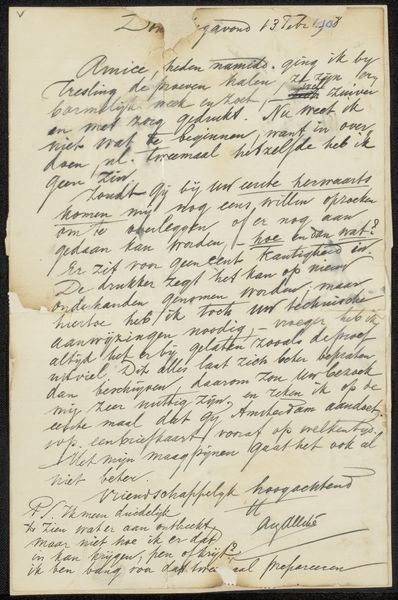 Donderdagavond 13 Febr 1908
Amice, heden namidd. ging ik by
Tresling de proeven halen, ze zyn er
barmelyk week en zoet, wel zuiver
en met zorg gedrukt. Nu weet ik
niet wat te beginnen, want in over
doen, nl. tweemaal hetzelfde heb ik
geen zin.
Zoudt Gy by uw eerste herwaarts
komen my nog eens willen opzoeken
om te overleggen of er nog aan
gedaan kan worden, - hoe en dan wat?
Er zit voor geen cent kantigheid in.
De drukker zegt het kan op nieuw
onderhanden genomen worden; maar
hiertoe heb ik toch uw technische
aanwyzingen noodig, - vroeger heb ik
altyd het er by gelaten, zooals de proef
uitviel. Dit alles laat zich beter bepraten
dan beschryven, daarom zou uw bezoek
my zeer nuttig zyn, en reken ik op de
eerste maal dat gy Amsterdam aandoet.
s.v.p. een briefkaart vooraf op welken tyd.
Met myn maagpynen gaat het ook al
niet beter.
Vriendschappelyk hoogachtend
tt
AugAllebé
P.S. Ik meen duidelyk
te zien wat er aan ontbreekt
maar niet hoe ik er dat
in kan krygen, pen of kryt?
ik ben bang voor dat twee maal prepareeren